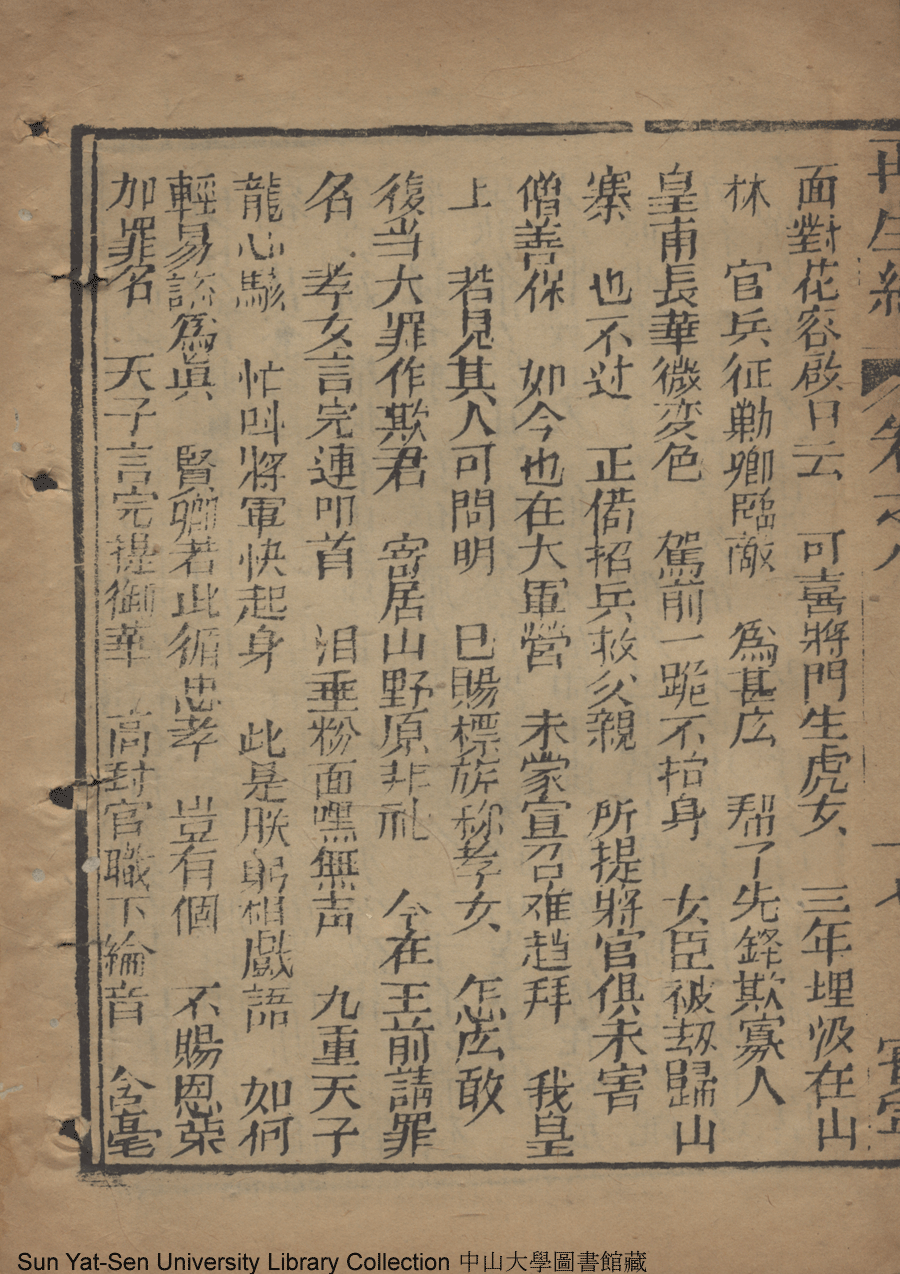 再生緣 卷之八 十七 寶寧
面對花容啟口云 可喜將門生虎女 三年埋没在山
林 官兵征勦卿臨敵 為甚広 帮了先鋒欺寡人
皇甫長華微变色 駕前一跪不抬身 女臣被刼歸山
寨 也不过 正借招兵救父親 所提將官俱未害
僧善保 如今也在大軍營 未蒙宣召难趋拜 我皇
上 若見其人可問明 已賜標旂称孝女 怎広敢
復当大罪作欺君 寄居山野原非礼 今在王前請罪
名 孝女言完連叩首 泪垂粉面嘿無声 九重天子
龍心駭 忙叫將軍快起身 此是朕躬相戲語 如何
輕易認為眞 賢卿若此循忠孝 豈有個 不賜恩荣
加罪名 天子言完提御筆 高封官職下綸音 含毫
Sun Yat-Sen University Library Collection 中山大學圖書館藏